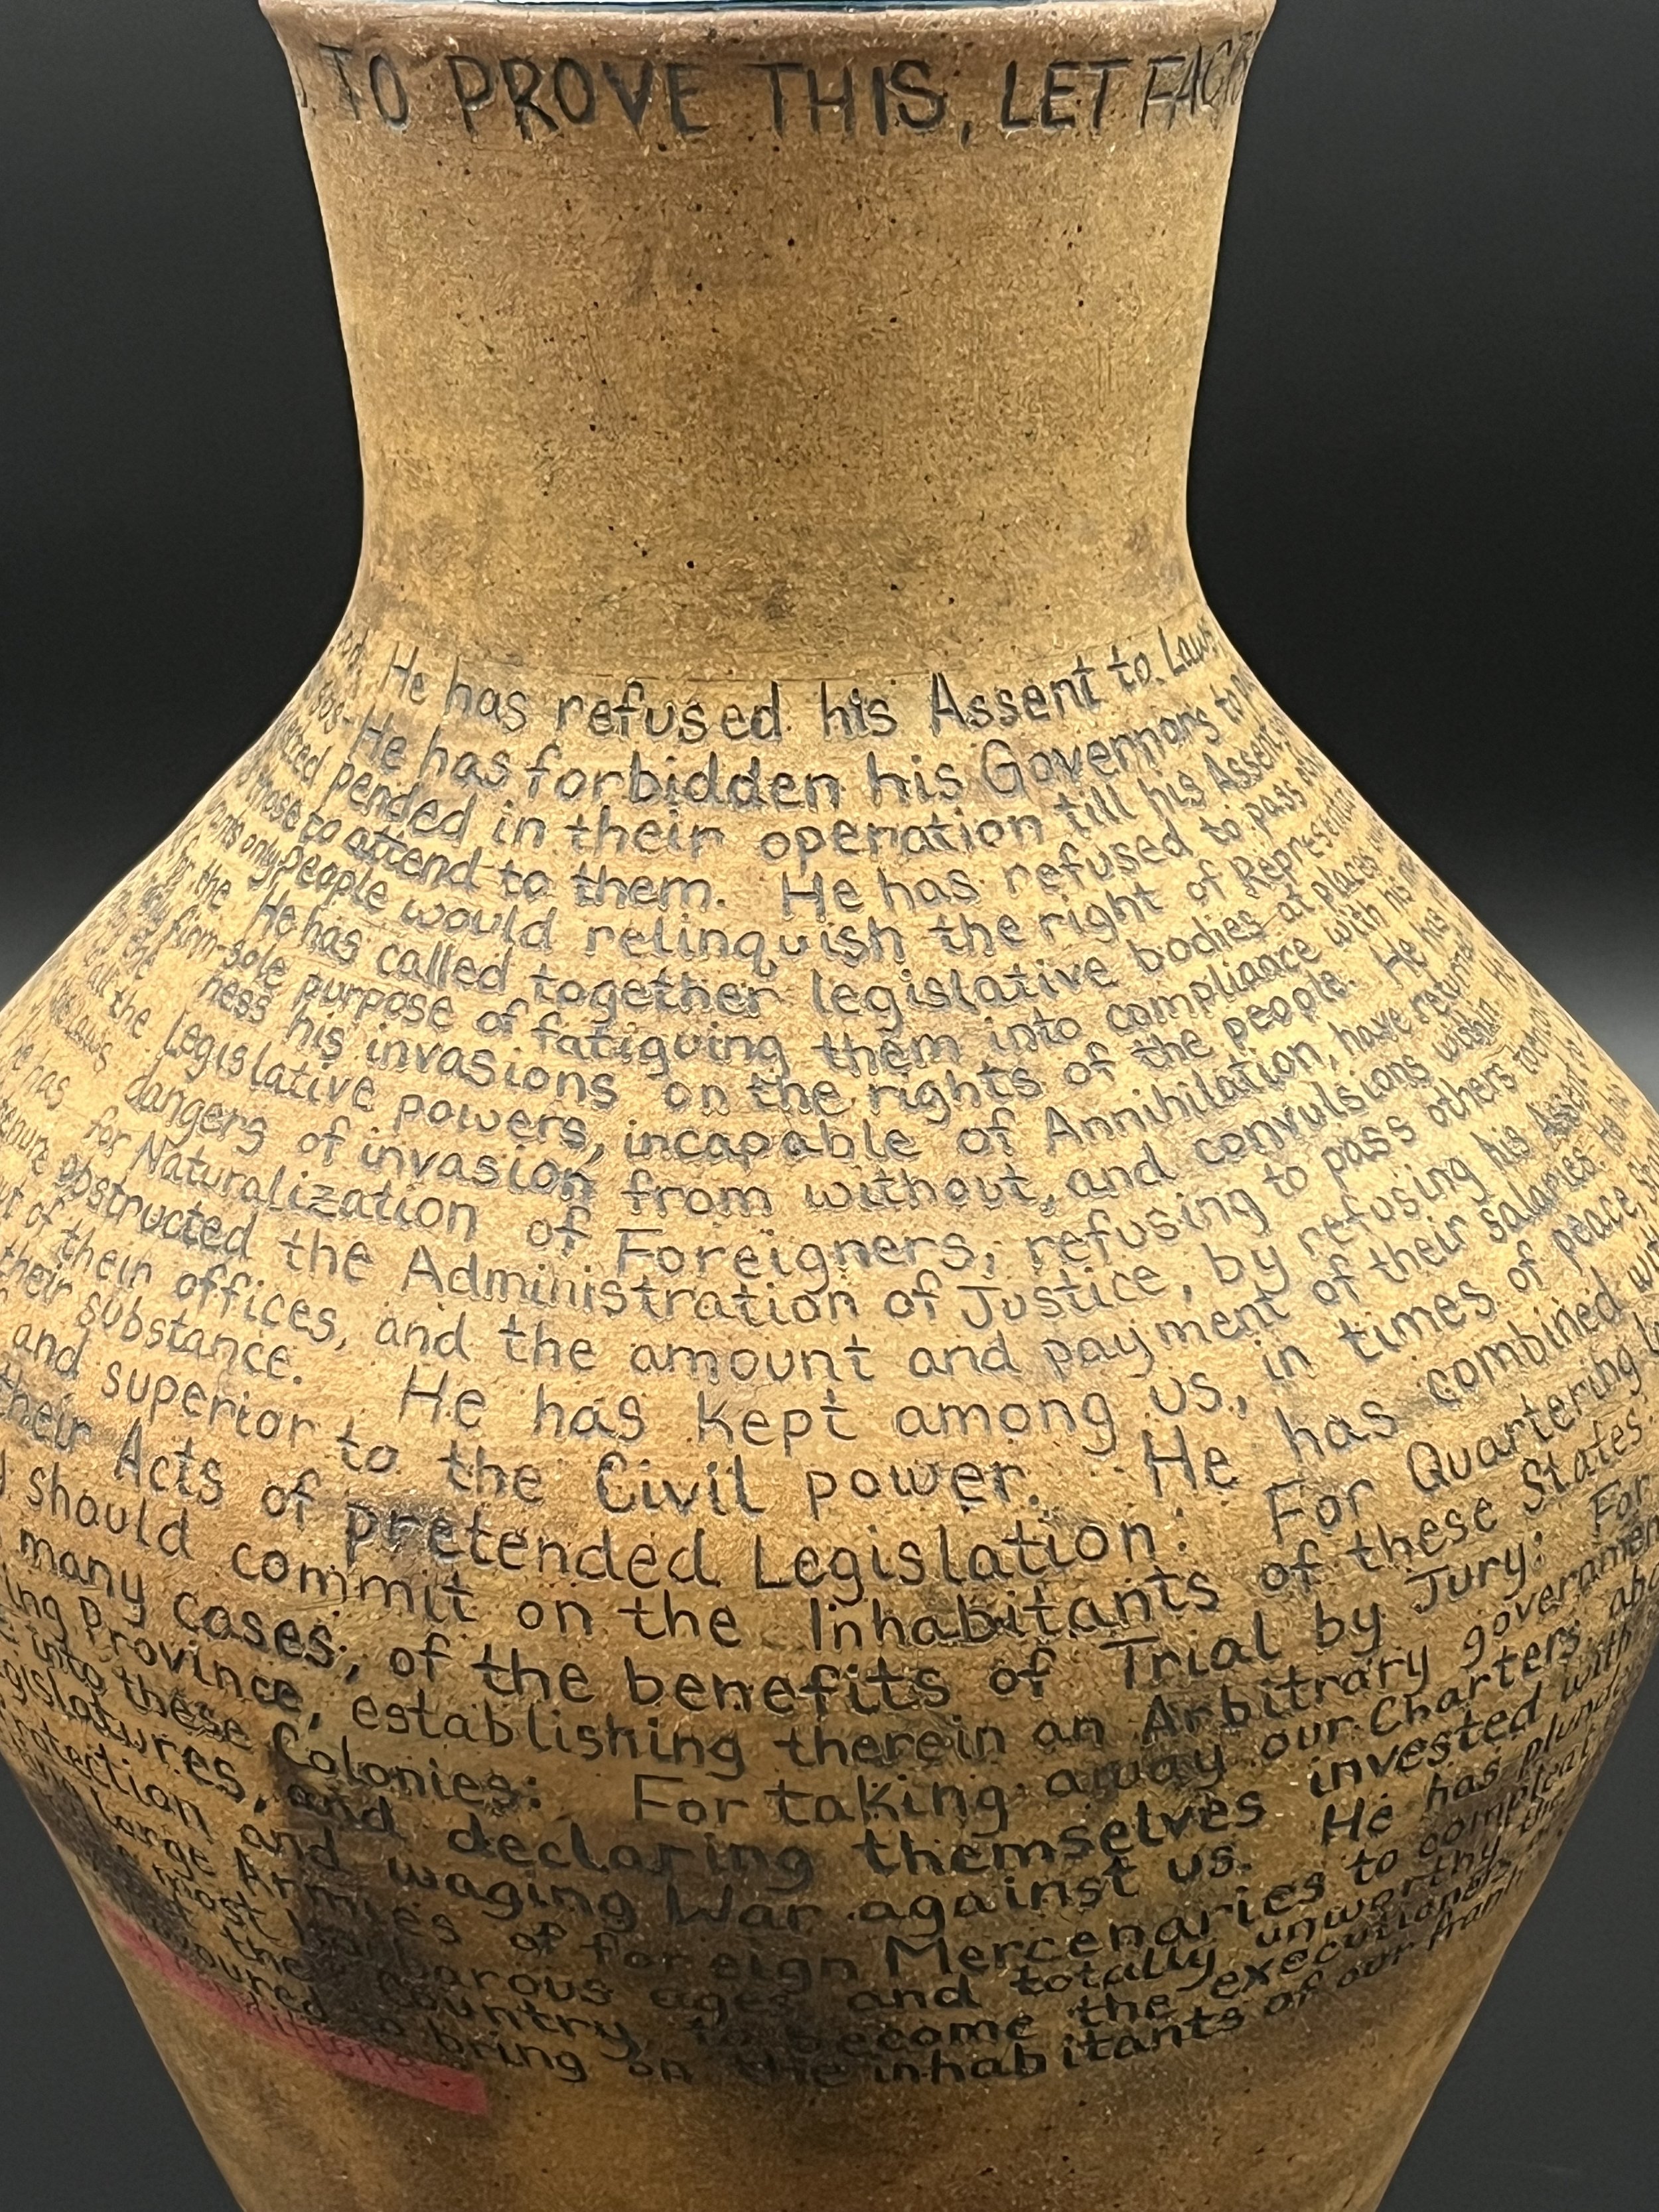 TO PROVE THIS, LET FAC
He has refused his Assent to Laws
He has forbidden his Governors to
pended in their operation till his Assent
those to attend to them. He has refused to pass
only people would relinquish the right of Represent
for the He has called together legislative bodies at places
sole purpose of fatiguing them into compliance with his
ness his invasions on the rights of the people. He has
all the Legislative powers, incapable of Annihilation, have returned
dangers of invasion from without, and convulsions within. He
he has for Naturalization of Foreigners; refusing to pass others
tenure obstructed the Administration of Justice, by refusing his Assent to
of their offices, and the amount and payment of their salaries. He has
their substance. He has kept among us, in times of peace, Sta
and superior to the Civil power. He has combined with
their Acts of pretended Legislation: For Quartering
should commit on the Inhabitants of these States:
many cases, of the benefits of Trial by Jury: For
ing Province, establishing therein an Arbitrary government
into these Colonies: For taking away our Charters, abo
egislatures, and declaring themselves invested with
rotection and waging War against us. He has plunde
large Armies of foreign Mercenaries to compleat
most barbarous ages and totally unworthy the
their Country, to become the executioners
oured to bring on the inhabitants of our fron
nditions